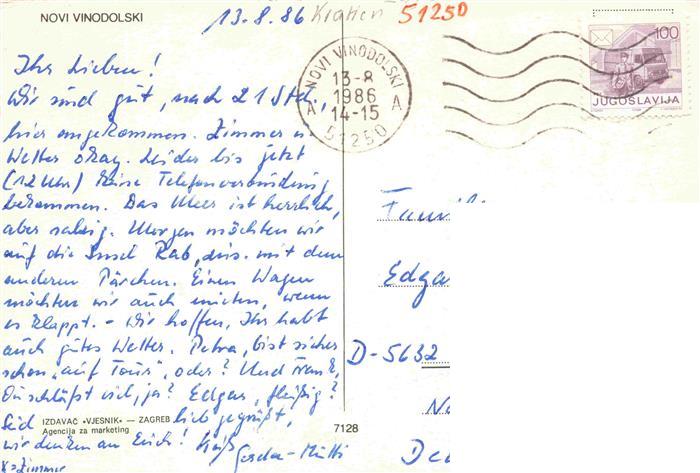 NOVI VINODOLSKI
13.8.86 Kroatien 51250
NOVI VINODOLSKI
13-8
1986
14-15
A A
51250
100
JUGOSLAVIJA
Ihr Lieben!
Wir sind gut, nach 21 Std.,
hier angekommen. Zimmer u.
Wetter okay. Leider bis jetzt
(12 Uhr) keine Telefonverbindung
bekommen. Das Meer ist herrlich,
aber salzig. Morgen möchten wir
auf die Insel Rab, mit dem
anderen Pärchen. Einen Wagen
möchten wir auch mieten, wenn
es klappt. - Wir hoffen, Ihr habt
auch gutes Wetter. Petra, bist sicher
schon "auf Tour", oder? Und Frank,
Du schläfst viel, ja? Edgar, fleißig?
Seid lieb gegrüßt,
wir denken an Euch!
Gerda-Mutti
Famili
Edga
D-5632
Deu
IZDAVAČ «VJESNIK» — ZAGREB
Agencija za marketing
7128